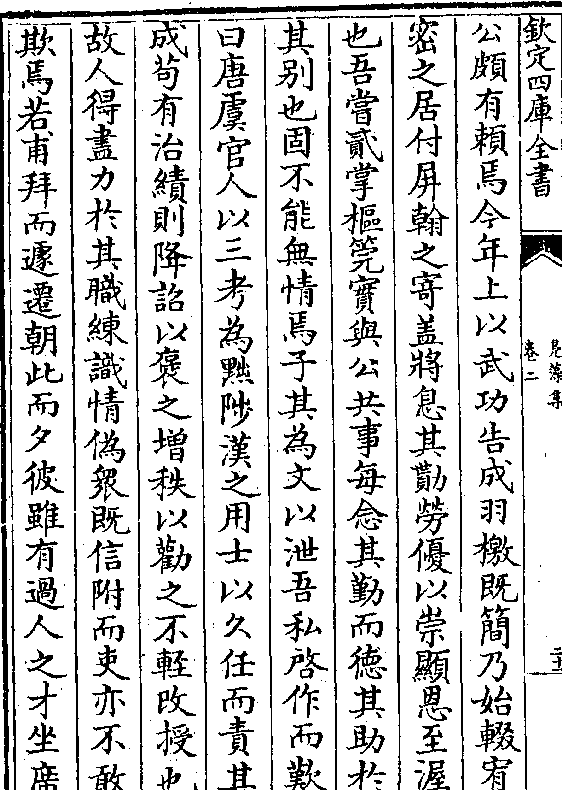 欽定四庫全書
鳧藻集
卷二
二十
公頗有賴焉今年上以武功告成羽檄既簡乃始輟宥
密之居付屏翰之寄盖將息其勤勞優以崇顯恩至渥
也吾嘗貳掌樞筦實與公共事每念其勤而德其助於
其别也固不能無情焉子其為文以泄吾私啓作而歎
曰唐虞官人以三考為黜陟漢之用士以久任而責其
成茍有治績則降詔以褒之增秩以勸之不輕改授也
故人得盡力於其職練識情偽衆既信附而吏亦不敢
欺焉若甫拜而遽遷朝此而夕彼雖有過人之才坐席